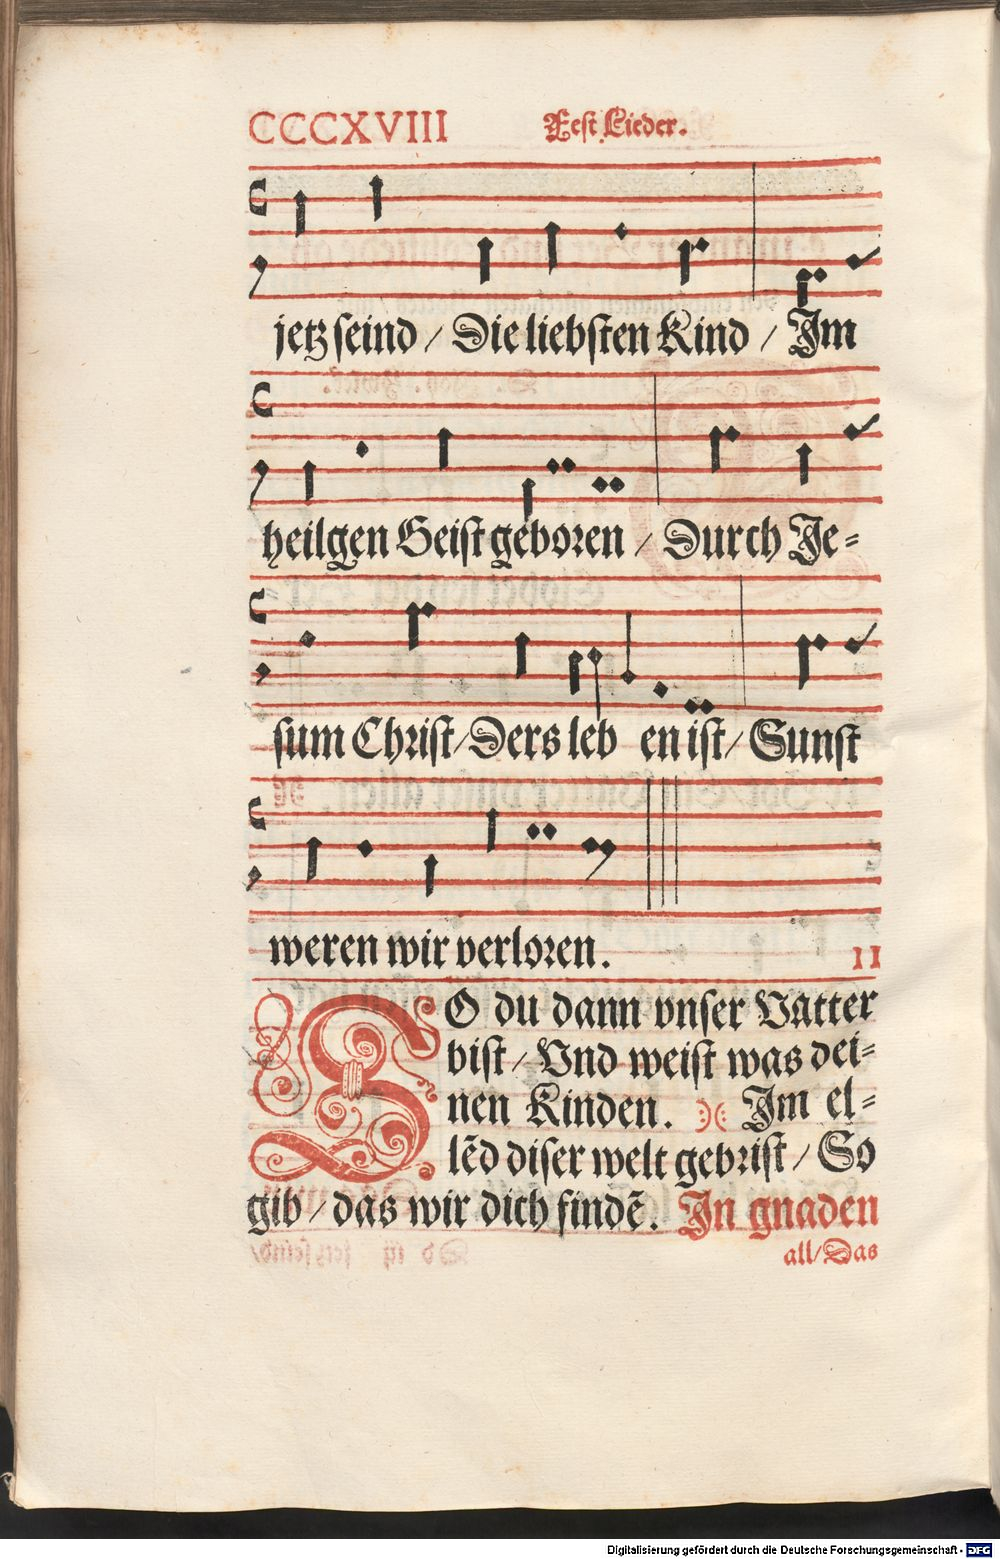 CCCXVIII Fest Lieder.
jetz seind / Die liebsten Kind / Im
heilgen Geist geboren / Durch Je⸗
sum Christ / Ders leb en ist / Sunst
weren wir verloren. II
SO du dann vnser Vatter
bist / Vnd weist was dei⸗
nen Kinden. Im el⸗
lẽd diser welt gebrist / So
gib / das wir dich findẽ. In gnaden
all / Das
Digitalisierung gefördert durch die Deutsche Forschungsgemeinschaft - DFG